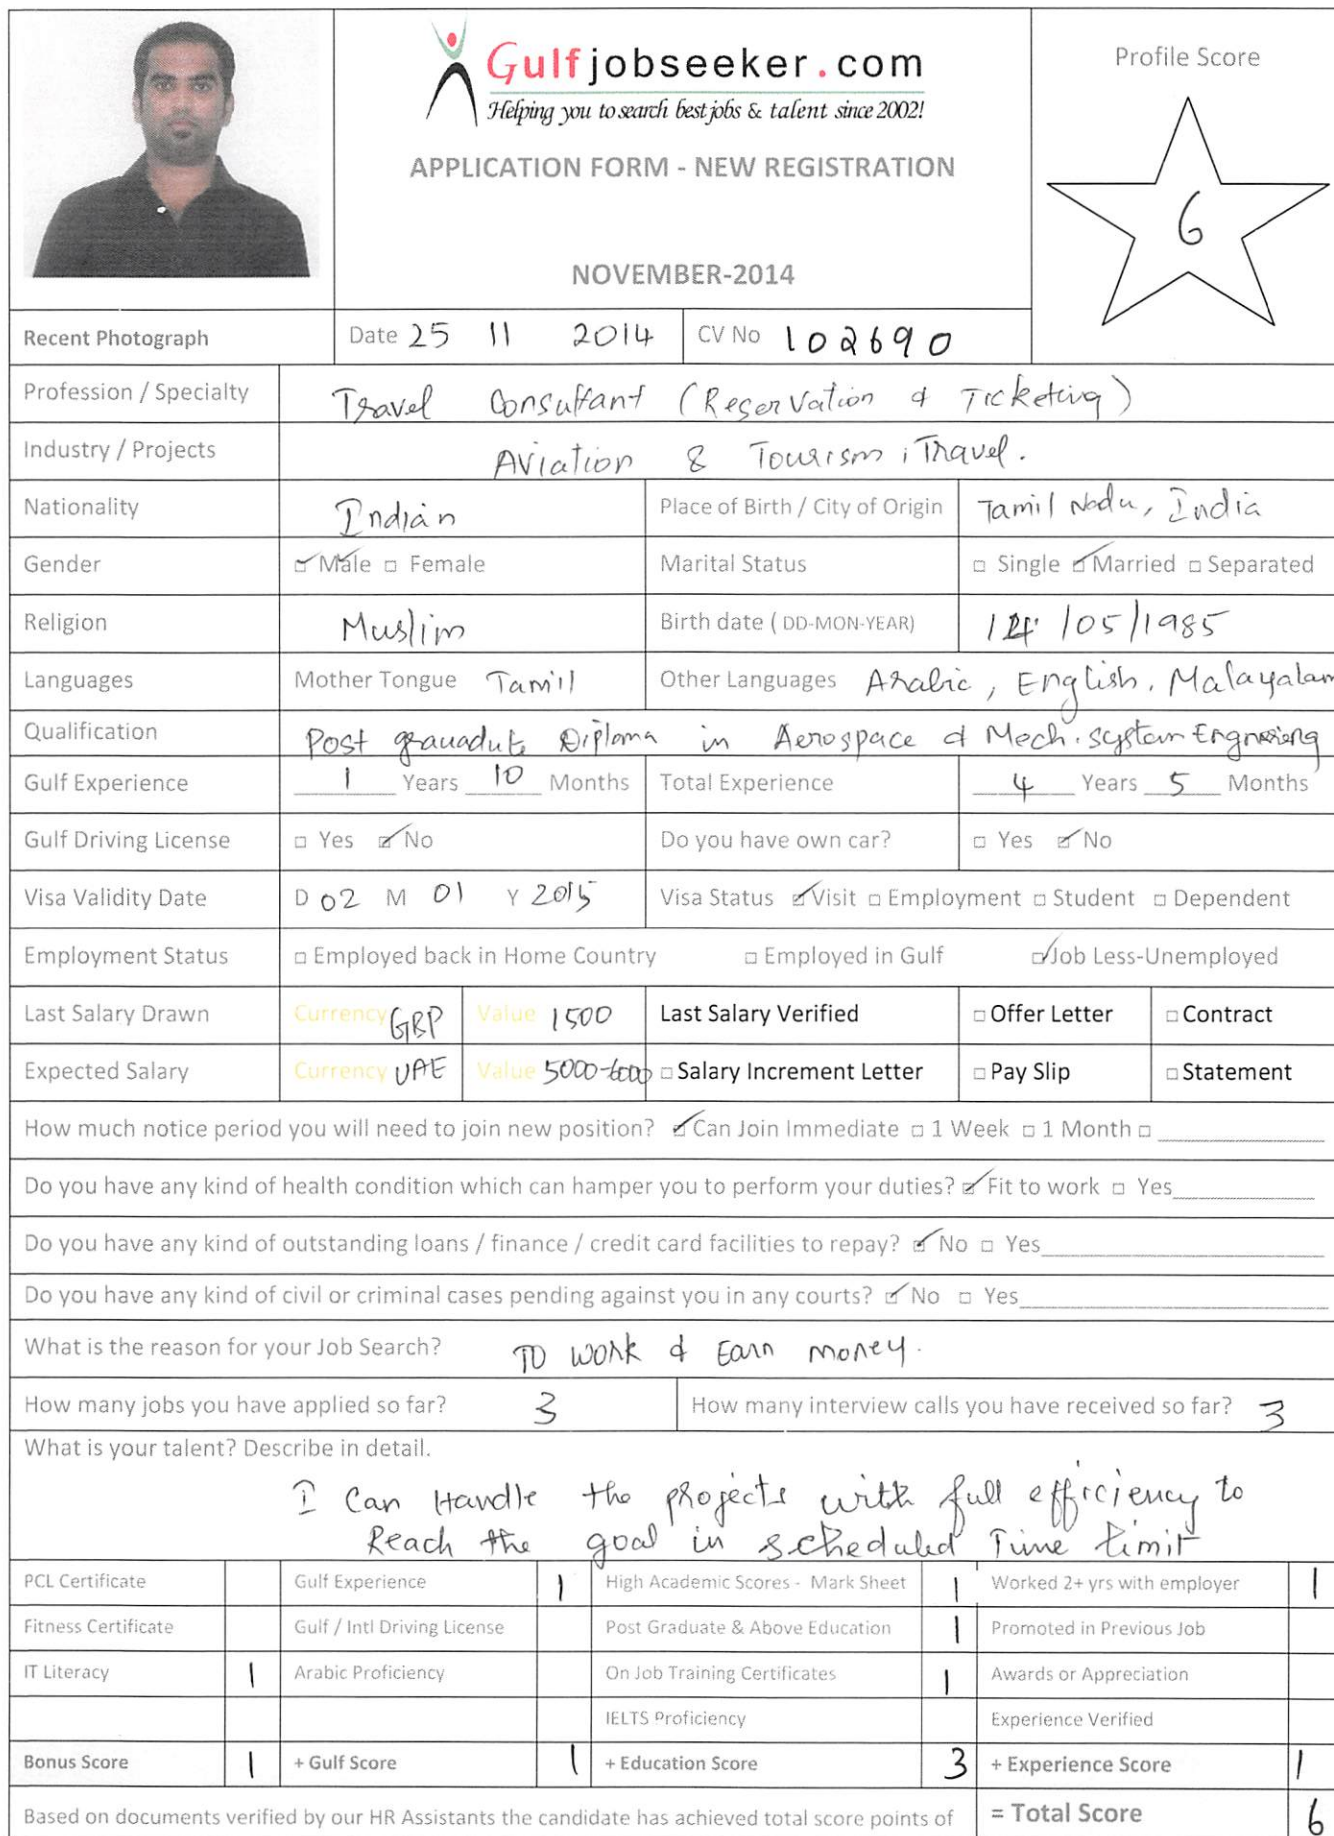 Gulfjobseeker.com
Helping you to search best jobs & talent since 2002!
APPLICATION FORM - NEW REGISTRATION
NOVEMBER-2014
Profile Score
6
Recent Photograph
Date 25 11 2014
CV No 102690
Profession / Specialty Travel Consultant (Reservation & Ticketing)
Industry / Projects Aviation & Tourism, Travel.
Nationality Indian
Place of Birth / City of Origin Tamil Nadu, India
Gender Male Female
Marital Status Single Married Separated
Religion Muslim
Birth date ( DD-MON-YEAR) 14/05/1985
Languages Mother Tongue Tamil
Other Languages Arabic, English, Malayalam
Qualification Post grauadute Diploma in Aerospace & Mech. system
Gulf Experience 1 Years 10 Months
Total Experience 4 Years 5 Months
Gulf Driving License Yes No
Do you have own car? Yes No
Visa Validity Date D 02 M 01 Y 2015
Visa Status Visit Employment Student Dependent
Employment Status Employed back in Home Country Employed in Gulf Job Less-Unemployed
Last Salary Drawn Currency GBP Value 1500 Last Salary Verified Offer Letter Contract
Expected Salary Currency UAE Value 5000-6000 Salary Increment Letter Pay Slip Statement
How much notice period you will need to join new position? Can Join Immediate 1 Week 1 Month
Do you have any kind of health condition which can hamper you to perform your duties? Fit to work Yes
Do you have any kind of outstanding loans / finance / credit card facilities to repay? No Yes
Do you have any kind of civil or criminal cases pending against you in any courts? No Yes
What is the reason for your Job Search? TO WORK & Earn money.
How many jobs you have applied so far? 3
How many interview calls you have received so far? 3
What is your talent? Describe in detail.
I Can Handle the projects with full efficiency to
Reach the goal in scheduled Time limit
PCL Certificate Gulf Experience 1 High Academic Scores - Mark Sheet 1 Worked 2+ yrs with employer 1
Fitness Certificate Gulf / Intl Driving License Post Graduate & Above Education 1 Promoted in Previous Job
IT Literacy 1 Arabic Proficiency On Job Training Certificates 1 Awards or Appreciation
IELTS Proficiency Experience Verified
Bonus Score 1 + Gulf Score 1 + Education Score 3 + Experience Score 1
Based on documents verified by our HR Assistants the candidate has achieved total score points of = Total Score 6